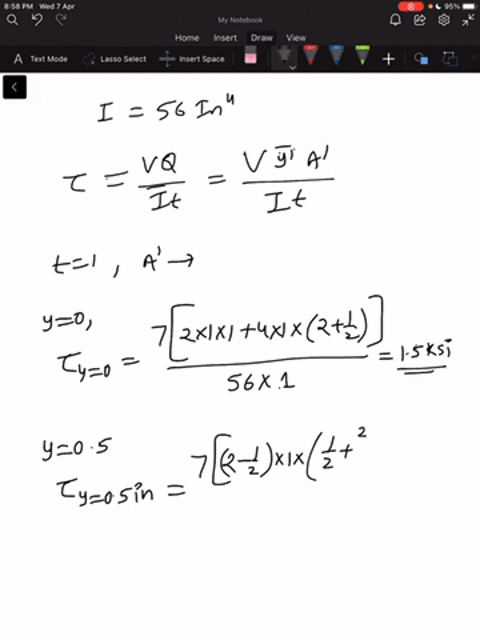 8:58 PM Wed 7 Apr
95%
My Notebook
Home Insert Draw View
A Text Mode Lasso Select Insert Space
I = 56 In⁴
τ = VQ / It = V ȳ' A' / It
t=1 , A' →
y=0,
τ y=0 = 7[2×1×1+4×1×(2+1/2)] / 56×1 = 1.5 ksi
y=0.5
τ y=0.5in = 7[(2-1/2)×1×(1/2+ 2